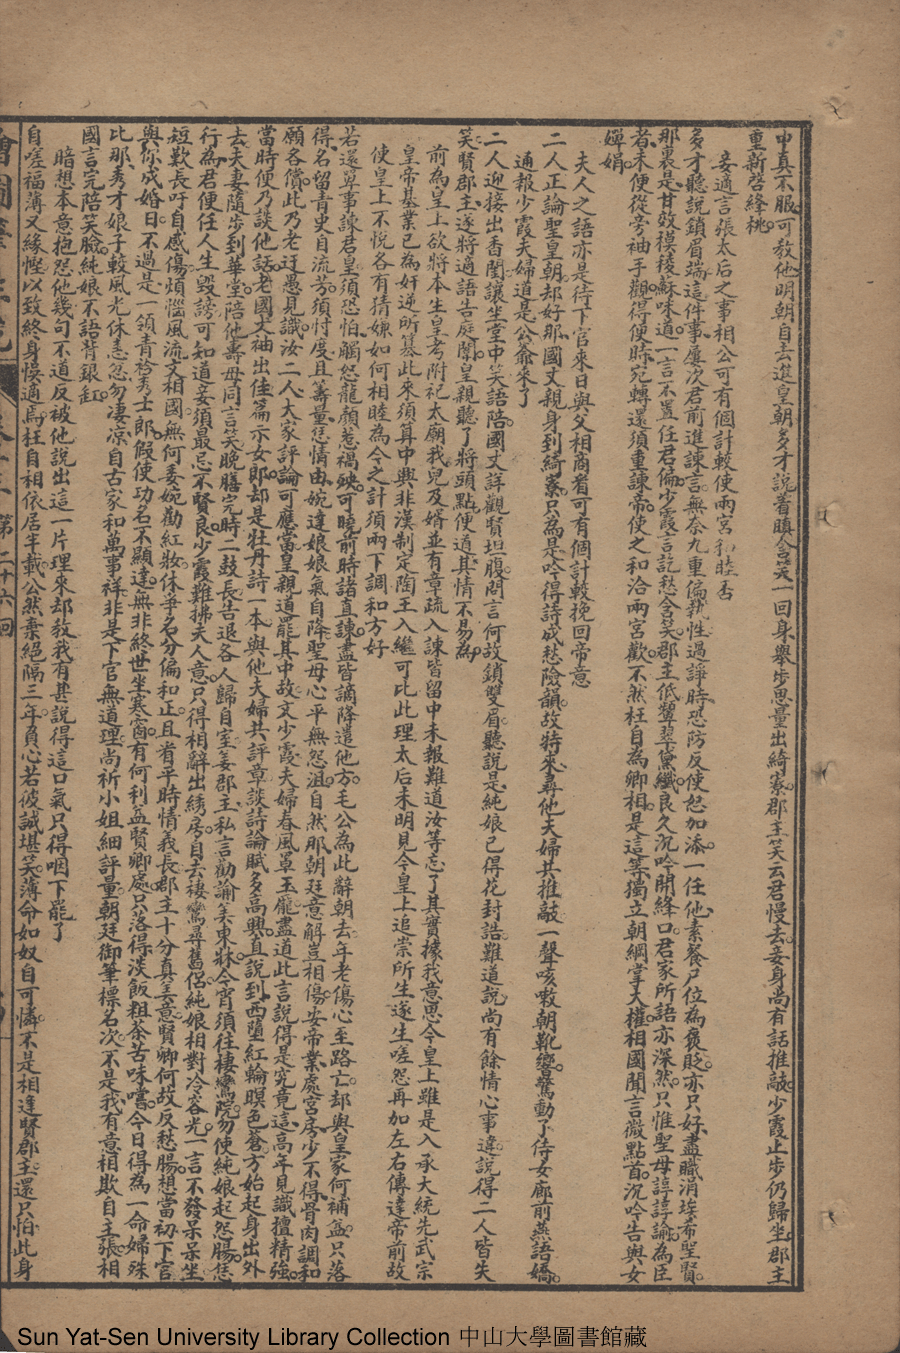 中真不服可教他明朝自去進皇朝多才說着瞋含笑一回身舉步思量出綺寮郡主笑云君慢去妾身尚有話推敲少霞止步仍歸坐郡主
重新啓絳桃
妾適言張太后之事相公可有個計較使兩宮和睦否
多才聽說鎖眉端這件事屢次君前進諫言無奈九重偏執性過諍時恐防反使怒加添一任他素餐尸位為褒貶亦只好盡職涓埃希聖賢
那裏是甘效模稜蘇味道一言不置任君偏少霞言訖愁含笑郡主低顰翠黛纖良久沉吟開絳口君家所語亦深然只惟聖母諄諄諭為臣
者未便從旁袖手觀得便時宛轉還須重諫帝使之和洽兩宮歡不然枉自為卿相是這等獨立朝綱掌大權相國聞言微點首沉吟告與女
嬋娟
夫人之語亦是待下官來日與父相商看可有個計較挽回帝意
二人正論聖皇朝却好那國丈親身到綺寮只為是吟得詩成愁險韻故特來尋他夫婦共推敲一聲咳嗽朝靴響驚動了侍女廊前燕語嬌
通報少霞夫婦道是公爺來了
二人迎接出香閨讓坐堂中笑語陪國丈詳觀賢坦腹問言何故鎖雙眉聽說是純娘已得花封誥難道說尚有餘情心事違說得二人皆失
笑賢郡主遂將適語告庭闈皇親聽了將頭點便道其情不易為
前為皇上欲將本生皇考附祀太廟我兒及婿並有章疏入諫皆留中未報難道汝等忘了其實據我意思今皇上雖是入承大統先武宗
皇帝基業已為奸逆所篡此來須算中興非漢制定陶王入繼可比此理太后未明見今皇上追崇所生遂生嗟怨再加左右傳達帝前故
使皇上不悅各有猜嫌如何相睦為今之計須兩下調和方好
若還單事諫君皇須恐怕觸怒龍顏惹禍殃可曉前時諸直諫盡皆謫降遣他方毛公為此辭朝去年老傷心至路亡却與皇家何補益只落
得名留青史自流芳須忖度且籌量恁情由婉達娘娘氣自降聖母心平無怨沮自然那朝廷意解豈相傷安帝業處宮房少不得骨肉調和
願各償此乃老迂愚見識汝二人大家評論可應當皇親道罷其中故文少霞夫婦春風罩玉龐盡道此言說得是究竟這高年見識擅精強
當時便乃談他話老國丈袖出佳篇示女郎却是牡丹詩一本與他夫婦共評章談詩論賦多高興直說到西墮紅輪暝色蒼方始起身出外
去夫妻隨步到華堂陪他壽母同言笑晚膳完時二鼓長告退各人歸自室姜郡主私言勸諭美東牀今宵須往棲鸞院勿使純娘起怨腸恁
行為君便任人生毀謗可知道妾須最忌不賢良少霞難拂夫人意只得相辭出綉房自去棲鸞尋舊侶純娘相對冷容光一言不發呆呆坐
短歎長吁自感傷煩惱風流文相國無何委婉勸紅妝休爭名分偏和正且看平時情義長郡主十分真美意賢卿何故反愁腸想當初下官
與你成婚日不過是一領青衿秀士郎假使功名不顯達無非終世坐寒窗有何利益賢卿處只落得淡飯粗茶苦味嚐今日得為一命婦殊
比那秀才娘子較風光休恚忽勿淒涼自古家和萬事祥非是下官無道理尚祈小姐細評量朝廷御筆標名次不是我有意相欺自主張相
國言完陪笑臉純娘不語背銀缸
暗想本意抱怨他幾句不道反被他說出這一片理來却教我有甚說得這口氣只得咽下罷了
自嗟福薄又緣慳以致終身慢適焉枉自相依居半載公然棄絕隔三年負心若彼誠堪笑薄命如奴自可憐不是相逢賢郡主還只怕此身
第二十六回
Sun Yat-Sen University Library Collection 中山大學圖書館藏